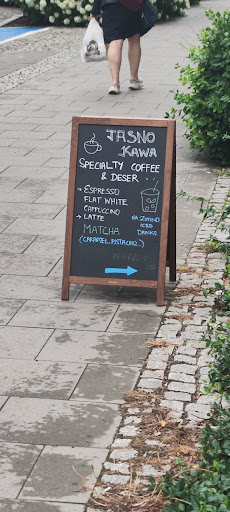 JASNO
KAWA
SPECIALTY COFFEE
& DESER
→ ESPRESSO
FLAT WHITE
CAPPUCCINO
→ LATTE
NA ZIMNO
ICED
DRINKS
MATCHA
(CARAMEL, PISTACHIO)